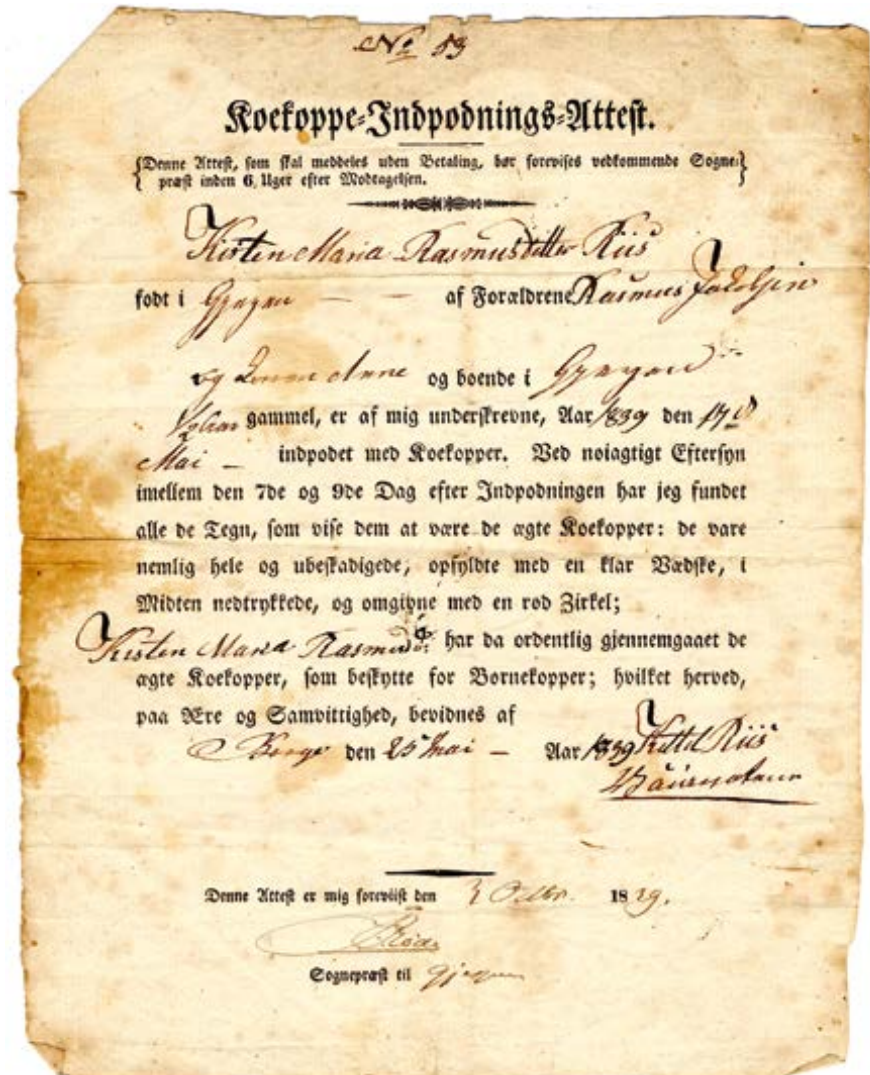 No 53
Koekoppe-Indpodnings-Attest.
{Denne Attest, som skal meddeles uden Betaling, bør forevises vedkommende Sogne-}
præst inden 6 Uger efter Modtagelsen.
Kisten Maria Rasmusdatter Riis
født i af Forældrene Rasmus Jakobsen
og Anne og boende i
gammel, er af mig underskrevne, Aar 1839 den 17d
Mai – indpodet med Koekopper. Ved nøiagtigt Eftersyn
imellem den 7de og 9de Dag efter Indpodningen har jeg fundet
alle de Tegn, som vise dem at være de ægte Koekopper: de vare
nemlig hele og ubeskadigede, opfyldte med en klar Vædske, i
Midten nedtrykkede, og omgivne med en rød Zirkel;
Kisten Maria har da ordentlig gjennemgaaet de
ægte Koekopper, som beskytte for Børnekopper; hvilket herved,
paa Ære og Samvittighed, bevidnes af
den 25 Mai – Aar 1839 Riis
Denne Attest er mig foreviist den 3 1839.
Sognepræst til